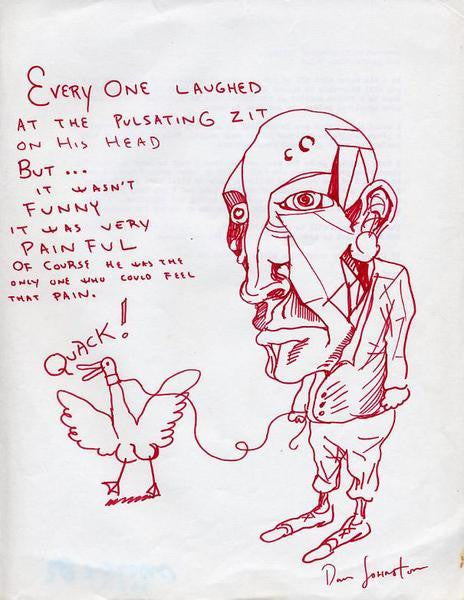 EVERY ONE LAUGHED
AT THE PULSATING ZIT
ON HIS HEAD
BUT...
IT WASN'T
FUNNY
IT WAS VERY
PAINFUL
OF COURSE HE WAS THE
ONLY ONE WHO COULD FEEL
THAT PAIN.
QUACK!
Dan Johnston